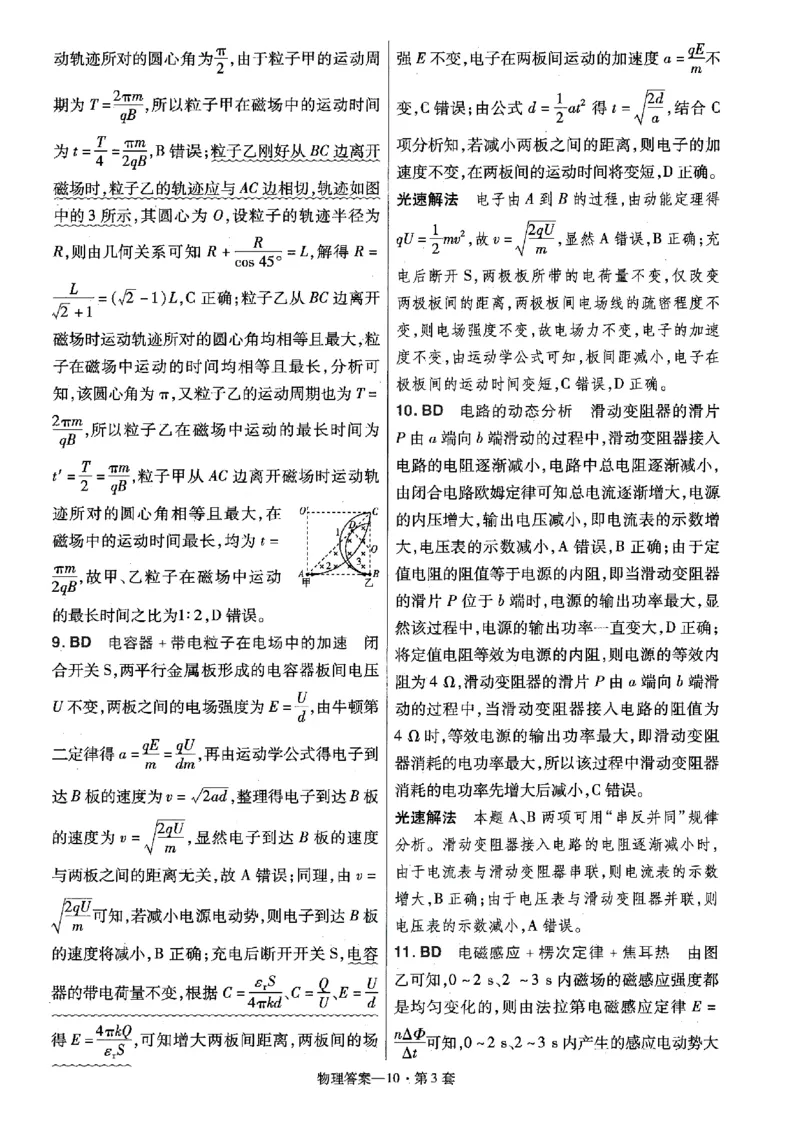 动轨迹所对的圆心角为π/2,由于粒子甲的运动周
期为 T=2πm/qB,所以粒子甲在磁场中的运动时间
为 t=T/4=πm/2qB,B 错误;粒子乙刚好从 BC 边离开
磁场时,粒子乙的轨迹应与 AC 边相切,轨迹如图
中的 3 所示,其圆心为 O,设粒子的轨迹半径为
R,则由几何关系可知 R+R/cos 45°=L,解得 R=
L/(√2+1)=(√2-1)L,C 正确;粒子乙从 BC 边离开
磁场时运动轨迹所对的圆心角均相等且最大,粒
子在磁场中运动的时间均相等且最长,分析可
知,该圆心角为 π,又粒子乙的运动周期也为 T=
2πm/qB,所以粒子乙在磁场中运动的最长时间为
t′=T/2=πm/qB,粒子甲从 AC 边离开磁场时运动轨
迹所对的圆心角相等且最大,在
磁场中的运动时间最长,均为 t=
πm/2qB,故甲、乙粒子在磁场中运动
的最长时间之比为1:2,D 错误。
O′ C
D
1
O
2 3
A B
甲 乙
9. BD 电容器+带电粒子在电场中的加速 闭
合开关 S,两平行金属板形成的电容器板间电压
U 不变,两板之间的电场强度为 E=U/d,由牛顿第
二定律得 a=qE/m=qU/dm,再由运动学公式得电子到
达 B 板的速度为 v=√(2ad),整理得电子到达 B 板
的速度为 v=√(2qU/m),显然电子到达 B 板的速度
与两板之间的距离无关,故 A 错误;同理,由 v=
√(2qU/m)可知,若减小电源电动势,则电子到达 B 板
的速度将减小,B 正确;充电后断开开关 S,电容
器的带电荷量不变,根据 C=εᵣS/4πkd、C=Q/U、E=U/d
得 E=4πkQ/εᵣS,可知增大两板间距离,两板间的场
强 E 不变,电子在两板间运动的加速度 a=qE/m不
变,C 错误;由公式 d=1/2at²得 t=√(2d/a),结合 C
项分析知,若减小两板之间的距离,则电子的加
速度不变,在两板间的运动时间将变短,D 正确。
光速解法 电子由 A 到 B 的过程,由动能定理得
qU=1/2mv²,故 v=√(2qU/m),显然 A 错误,B 正确;充
电后断开 S,两极板所带的电荷量不变,仅改变
两极板间的距离,两极板间电场线的疏密程度不
变,则电场强度不变,故电场力不变,电子的加速
度不变,由运动学公式可知,板间距减小,电子在
极板间的运动时间变短,C 错误,D 正确。
10. BD 电路的动态分析 滑动变阻器的滑片
P 由 a 端向 b 端滑动的过程中,滑动变阻器接入
电路的电阻逐渐减小,电路中总电阻逐渐减小,
由闭合电路欧姆定律可知总电流逐渐增大,电源
的内压增大,输出电压减小,即电流表的示数增
大,电压表的示数减小,A 错误,B 正确;由于定
值电阻的阻值等于电源的内阻,即当滑动变阻器
的滑片 P 位于 b 端时,电源的输出功率最大,显
然该过程中,电源的输出功率一直变大,D 正确;
将定值电阻等效为电源的内阻,则电源的等效内
阻为 4 Ω,滑动变阻器的滑片 P 由 a 端向 b 端滑
动的过程中,当滑动变阻器接入电路的阻值为
4 Ω 时,等效电源的输出功率最大,即滑动变阻
器消耗的电功率最大,所以该过程中滑动变阻器
消耗的电功率先增大后减小,C 错误。
光速解法 本题 A、B 两项可用“串反并同”规律
分析。滑动变阻器接入电路的电阻逐渐减小时,
由于电流表与滑动变阻器串联,则电流表的示数
增大,B 正确;由于电压表与滑动变阻器并联,则
电压表的示数减小,A 错误。
11. BD 电磁感应+楞次定律+焦耳热 由图
乙可知,0~2 s、2~3 s 内磁场的磁感应强度都
是均匀变化的,则由法拉第电磁感应定律 E=
nΔΦ/Δt可知,0~2 s、2~3 s 内产生的感应电动势大
物理答案—10·第 3 套